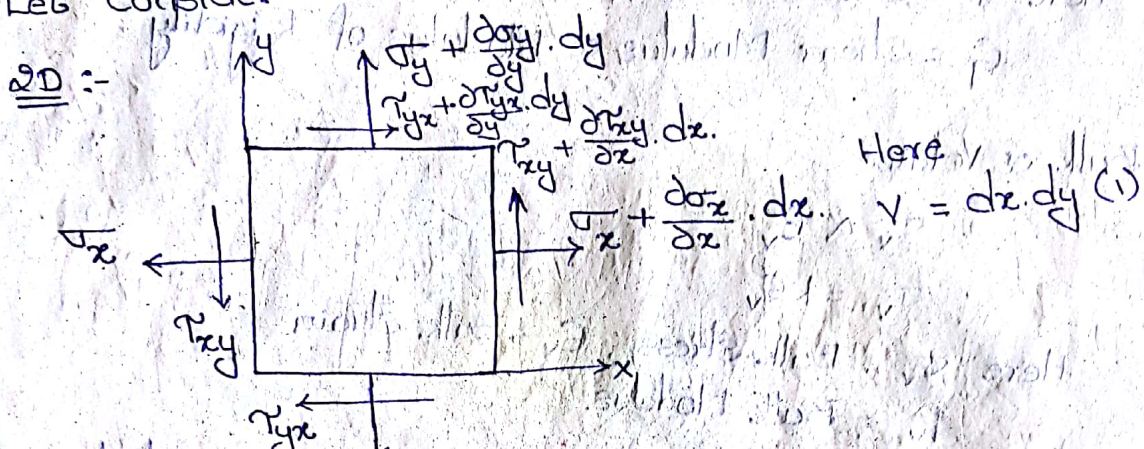 Let consider
2D :-
y
σy + ∂σy/∂y . dy
τyx + ∂τyx/∂y . dy
τxy + ∂τxy/∂x . dx.
Here
σx + ∂σx/∂x . dx. V = dx.dy (1)
σx
τxy
x
τyx